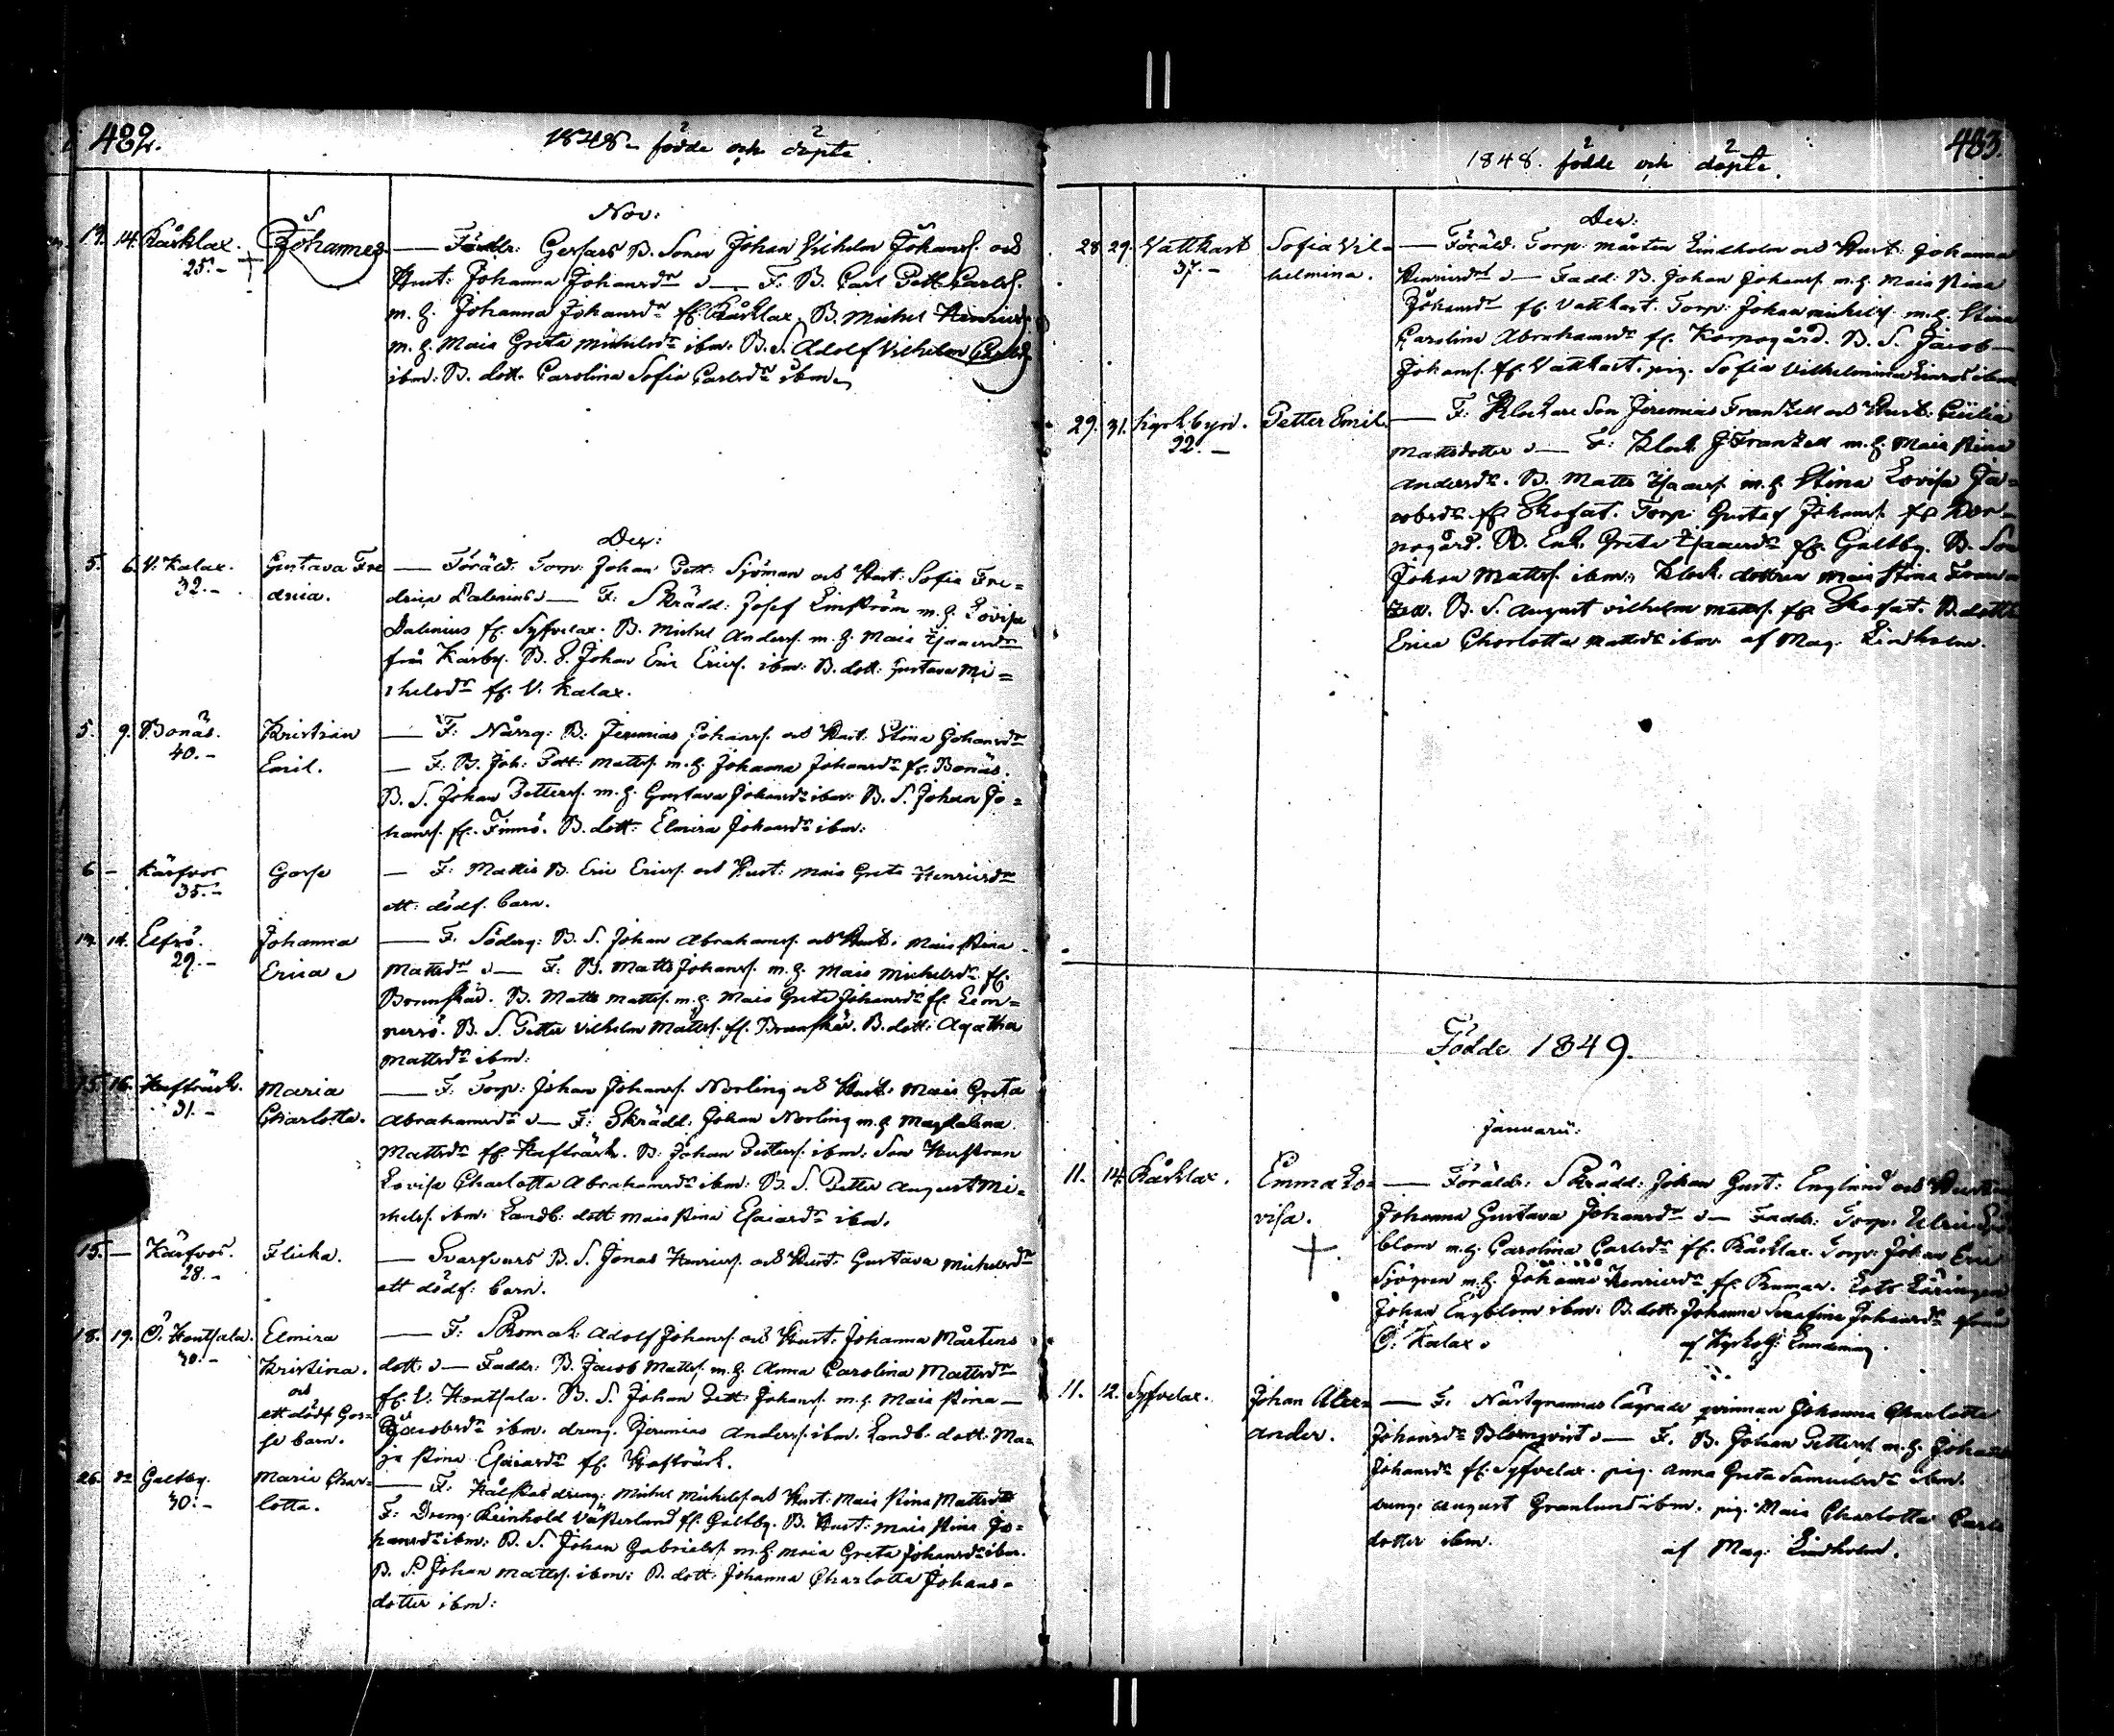 482.
1848. födde och döpte
Nov:
13. 14. Kåsklax. 25.- Johannes.
— Föräldr: Gersars B. Sonen Johan Vilhelm Johans. och
Hust: Johanna Johansdr — F: B. Carl Pett. Carls.
m. h. Johanna Johansdr fr. Kåsklax. B. Michel Henrics.
m. h. Maia Greta Michelsdr ibm. B. S. Adolf Vilhelm
ibm: B. dott. Carolina Sofia Carlsdr ibm.
Dec:
5. 6. V. Kalax. 32.- Gustava Fre
drica.
— Föräld: Torp: Johan Pett: Sjöman och Hust: Sofia Fre=
drica Dalenius — F: Skrädd: Josef Linström m. h. Lovisa
Dalenius fr. Syfvelax. B. Michel Anders. m. h. Maia Isaacsdr
från Karby. B. S. Johan Eric Erics. ibm: B. dott: Gustava Mi=
chelsdr fr. V. Kalax.
5. 9. Bonäs. 40.- Kristian
Emil.
— F: Nårrg: B: Jeremias Johans. och Hust: Stina Johansdr
— F: B. Joh: Pett: Matts. m. h. Johanna Johansdr fr. Bonäs.
B. S. Johan Petters. m. h. Gustava Johansdr ibm: B. S. Johan Jo=
hans. fr. Finnö. B. dott: Elmira Johansdr ibm:
6 - Kärfvos 35.- Gosse
— F: Mattis B. Eric Erics. och Hust: Maia Greta Henricsdr
ett: dödf. barn.
14. Elfsö. 29.- Johanna
Erica
— F. Söderg: B. S. Johan Abrahams. och Hust: Maia Stina
Mattsdr — F: B. Matts Johans. m. h. Maia Michelsdr fr.
B. Matts Matts. m. h. Maia Greta Johansdr fr.
B. S. Petter Vilhelm Matts. fr. B. dott: Agatha
Mattsdr ibm:
15. 16. Hafträsk. 31.- Maria
Charlotta.
— F. Torp: Johan Johans. Norling och Hust: Maia Greta
Abrahamsdr — F: Skrädd: Johan Norling m. h. Magdalena
Mattsdr fr. Hafträsk. B. Johan Petters. ibm. Son Hustrun
Lovisa Charlotta Abrahamsdr ibm: B. S. Petter August Mi=
chels. ibm. Landb: dott: Maia Stina Esaiasdr ibm.
15. — Kärfvos. 28.- Flicka.
— Svarfvars B. S. Jonas Henrics. och Hust: Gustava Michelsdr
ett dödf: barn.
18. 19. Ö. Hontsala. 30.- Elmira
Kristina.
och
ett dödf. Gos=
se barn.
— F: Skomak: Adolf Johans. och Hust: Johanna Mårtens
dott: — Faddr: B. Jacob Matts. m. h. Anna Carolina Mattsdr
fr. V. Hontsala. B. S. Johan Pett: Johans. m. h. Maia Stina —
Jacobsdr ibm. dreng. Jeremias Anders. ibm. Landb. dott. Ma=
ja Stina Esaiasdr fr. Hafträsk.
26. Galtby. 30.- Maria Char=
lotta.
— F: dreng: Michel Michels. och Hust: Maia Stina Mattsdr
F: Dreng: Reinhold Västerlund fr. Galtby. B. Hust: Maia Stina Jo=
hansdr ibm: B. S. Johan Gabriels. m. h. Maia Greta Johansdr ibm.
B. S. Johan Matts. ibm: B. dott: Johanna Charlotta Johans=
dotter ibm:
483.
1848. födde och döpte.
Dec:
28 29. Vattkast 37.- Sofia Vil=
helmina.
— Föräld: Torp: Mårten Lindholm och Hust: Johanna
Henricsdr — Fadd: B. Johan Johans. m. h. Maia Stina
Johansdr fr. Vattkast. Torp: Johan Michels. m. h. Stina
Carolina Abrahamsdr fr. Korpogård. B. S. Jacob —
Johans. fr. Vattkast. pig. Sofia Vilhelmina ibm
29. 31. Kyrkbyn. 32.- Petter Emil.
— F: Klockare Son Jeremias Franzell och Hust: Cecilia
Mattsdotter — F: Klock. J. Franzell m. h. Maia Stina
Andersdr. B. Matts Isaacs. m. h. Stina Lovisa Ja=
cobsdr fr. Skofat. Torp: Gustaf Johans. fr. Kor=
pogård. B. Enk. Greta Isaacsdr fr. Galtby. B. Son
Johan Matts. ibm: Klock. dottren Maia Stina Fran=
zell. B. S. August Vilhelm Matts. fr. Skofat. B. dott:
Erica Charlotta Mattsdr ibm. af Mag. Lindholm.
Födde 1849.
Januarii:
11. 14. Kåsklax. Emma Lo=
visa.
— Föräldr: Skrädd: Johan Gust: Englund och Hustru
Johanna Gustava Johansdr — Faddr: Torp: Ulric
blom m. h. Carolina Carlsdr fr. Kåsklax. Torp: Johan Eric
Sjögren m. h. Johanna Henricsdr fr. Rumar. Lots Läringen
Johan Engblom ibm: B. dott: Johanna Serafina Johansdr från
Ö. Kalax. af Kyrkoh:
11. 12. Syfvelax. Johan Alex=
ander.
— F. Nårtgrannas lägrade qvinnan Johanna Charlotta
Johansdr Blomqvist — F. B. Johan Petters. m. h. Johanna
Johansdr fr. Syfvelax. pig. Anna Greta Samuelsdr ibm.
dreng: August Granlund ibm. pig. Maia Charlotta Carls
dotter ibm. af Mag: Lindholm.